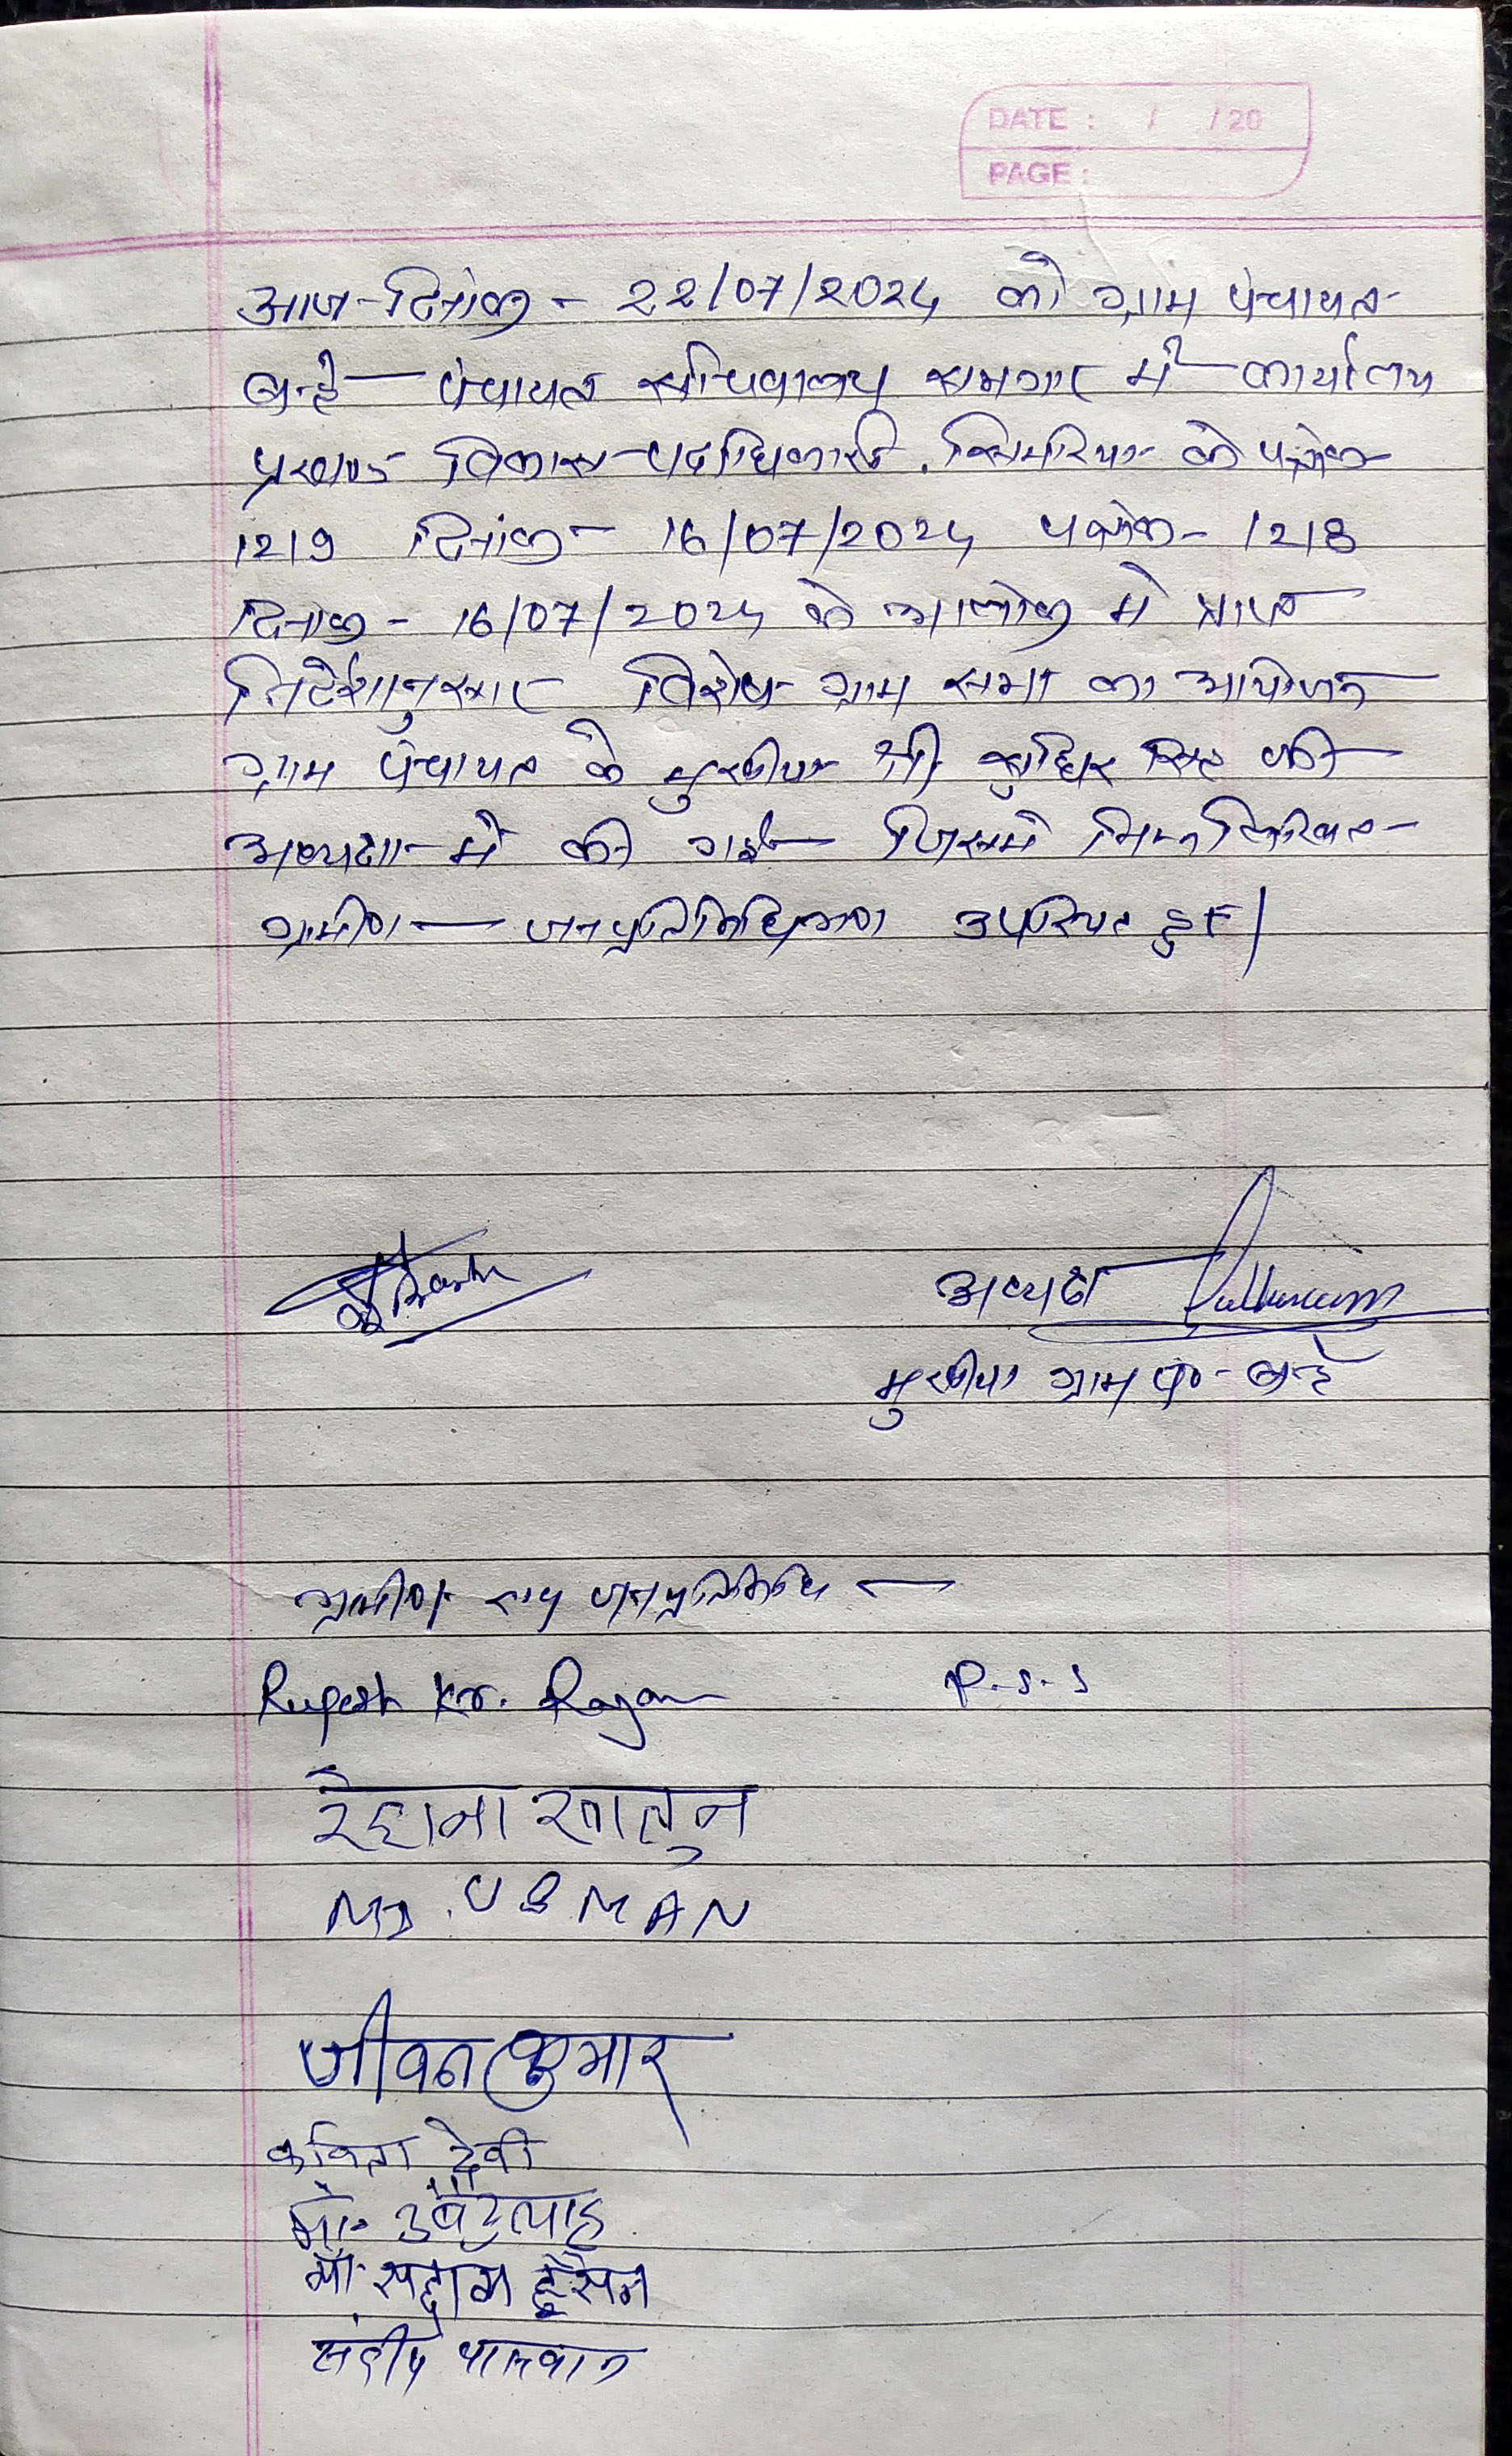 DATE : / / 20
PAGE :
आज दिनांक - 22/07/2024 को ग्राम पंचायत
बन्हे - पंचायत सचिवालय सभागार में कार्यालय
प्रखण्ड विकास पदाधिकारी, सिमरिया के पत्रांक
1219 दिनांक - 16/07/2024 पत्रांक - 1218
दिनांक - 16/07/2024 के आलोक में प्राप्त
निर्देशानुसार विशेष ग्राम सभा का आयोजन
ग्राम पंचायत के मुखीया श्री सिंह की
अध्यक्षता में की गई जिसमें निम्नलिखित
ग्रामीण — जनप्रतिनिधिगण उपस्थित हुए।
अध्यक्ष
मुखीया ग्राम पं० - बन्हे
ग्रामीण एवं जनप्रतिनिधि —
Rupesh Kr. Rajan P.S.S
रेहाना खातुन
MD. USMAN
जीवन कुमार
कविता देवी
मो. उबैदुल्लाह
मो. सद्दाम हुसैन
संदीप पासवान